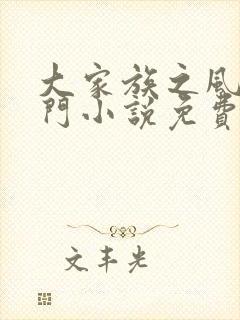 大家族之風
門小說免費
文丰光